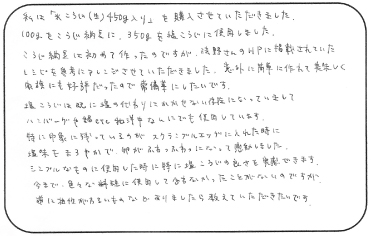 私は「米こうじ(生)450g入り」を購入させていただきました。
100gをこうじ納豆に、350gを塩こうじに使用しました。
こうじ納豆は初めて作ったのですが、浅野さんのHPに掲載されていた
レシピを参考にアレンジさせていただきました。意外に簡単に作れて美味しく
家族にも好評だったので常備菜にしたいです。
塩こうじは既に塩の代わりにかかせない存在になっていまして
ハンバーグや鍋etc 和洋中なんにでも使用しています。
特に印象に残っているのが スクランブルエッグに入れた時に
塩味もまろやかで、卵がふわっふわっになって感動しました。
シンプルなものに使用した時に特に塩こうじの良さを実感できます。
今まで、色々な料理に使用して合わなかったことがないのですが、
逆に相性がわるいものなどありましたら教えていただきたいです。